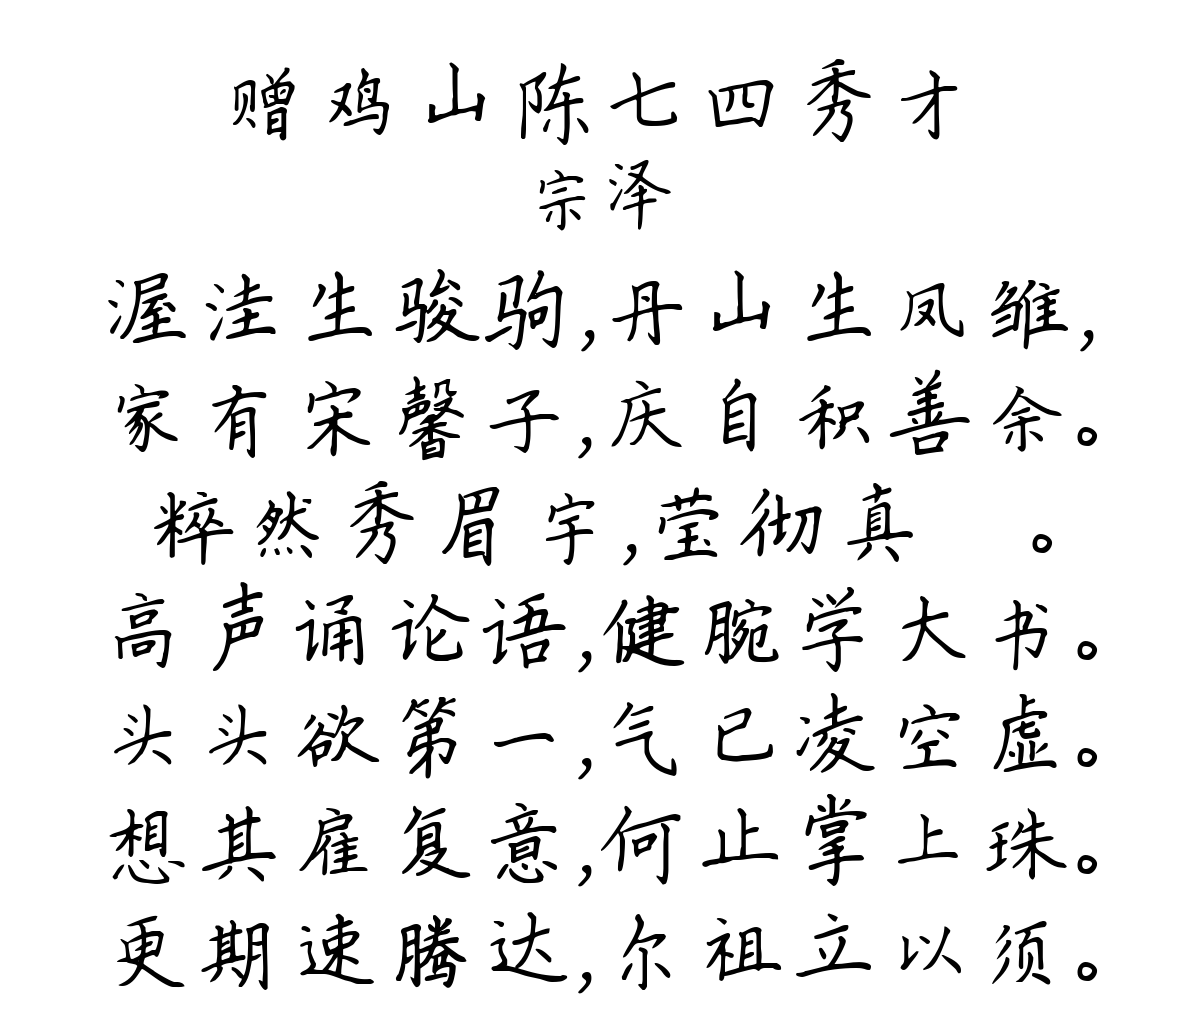 赠鸡山陈七四秀才
宗泽
渥洼生骏驹,丹山生凤雏,
家有宋馨子,庆自积善余。
粹然秀眉宇,莹彻真 。
高声诵论语,健腕学大书。
头头欲第一,气已凌空虚。
想其雇复意,何止掌上珠。
更期速腾达,尔祖立以须。